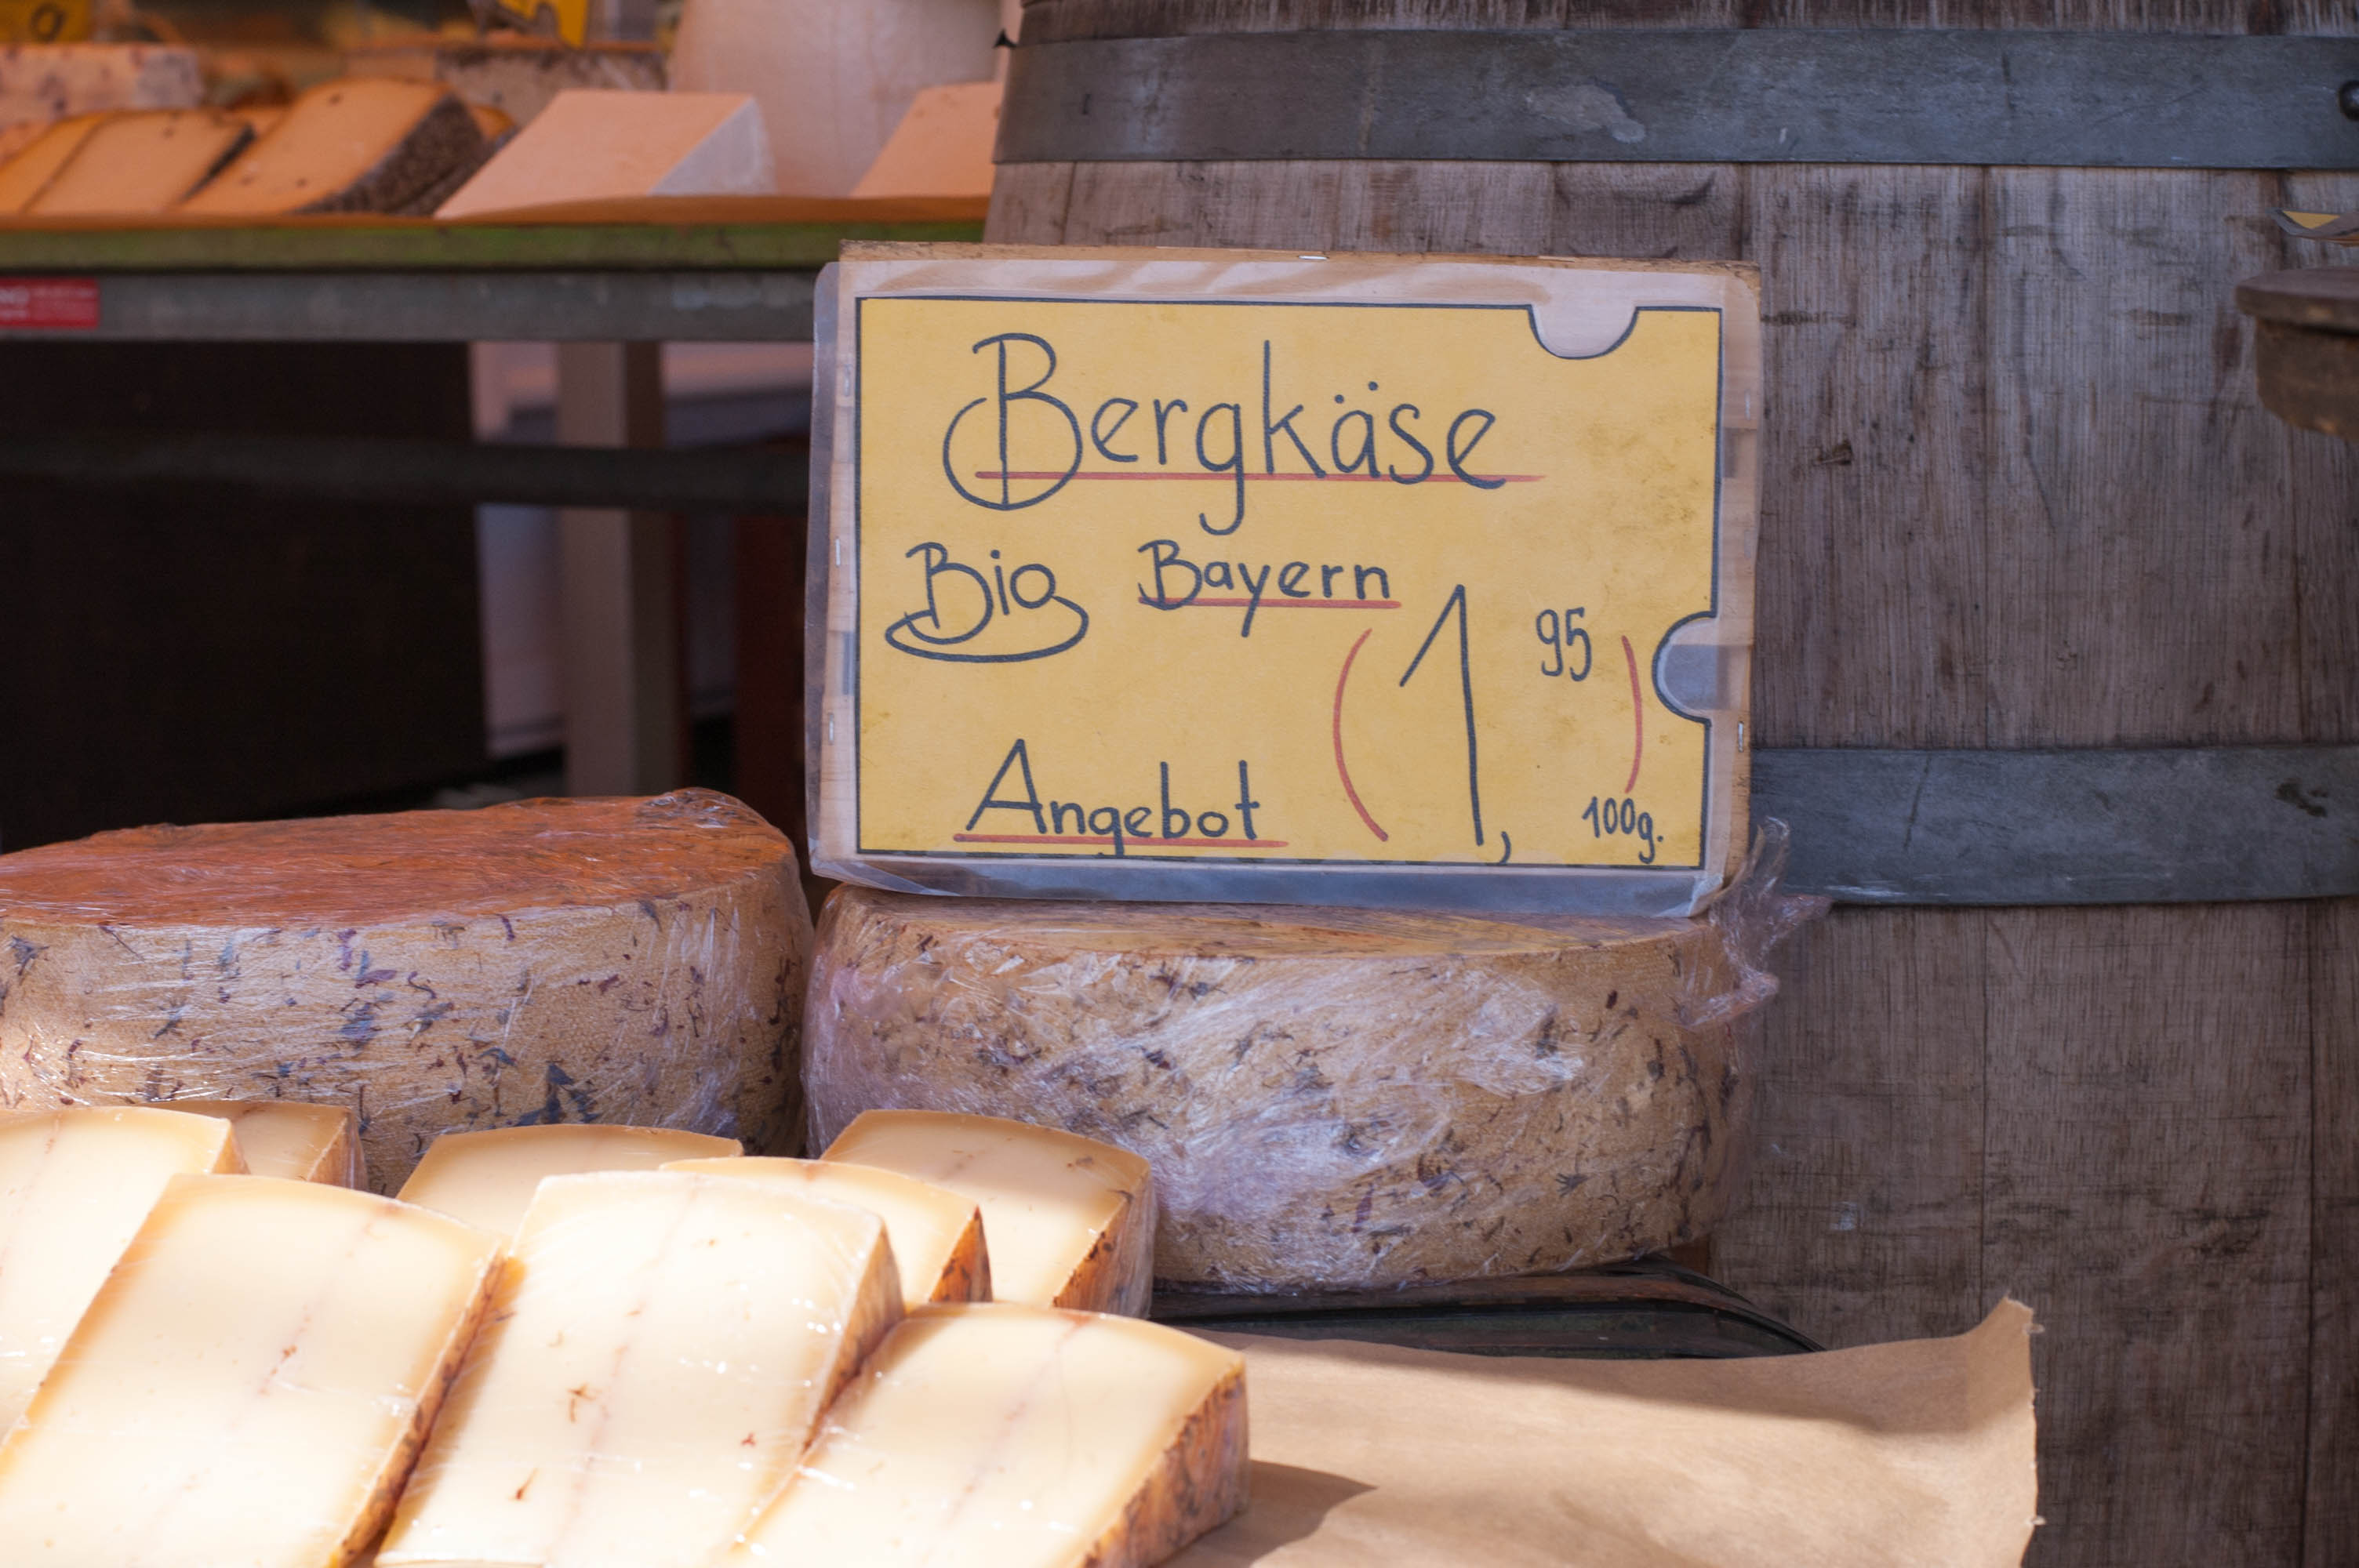 Bergkäse
Bio Bayern
(1,95)
Angebot 100g.